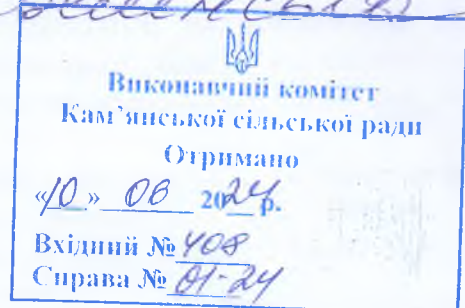 Виконавчий комітет
Кам'янської сільської ради
Отримано
«10» 06 2024 р.
Вхідний № 408
Справа № 01-24